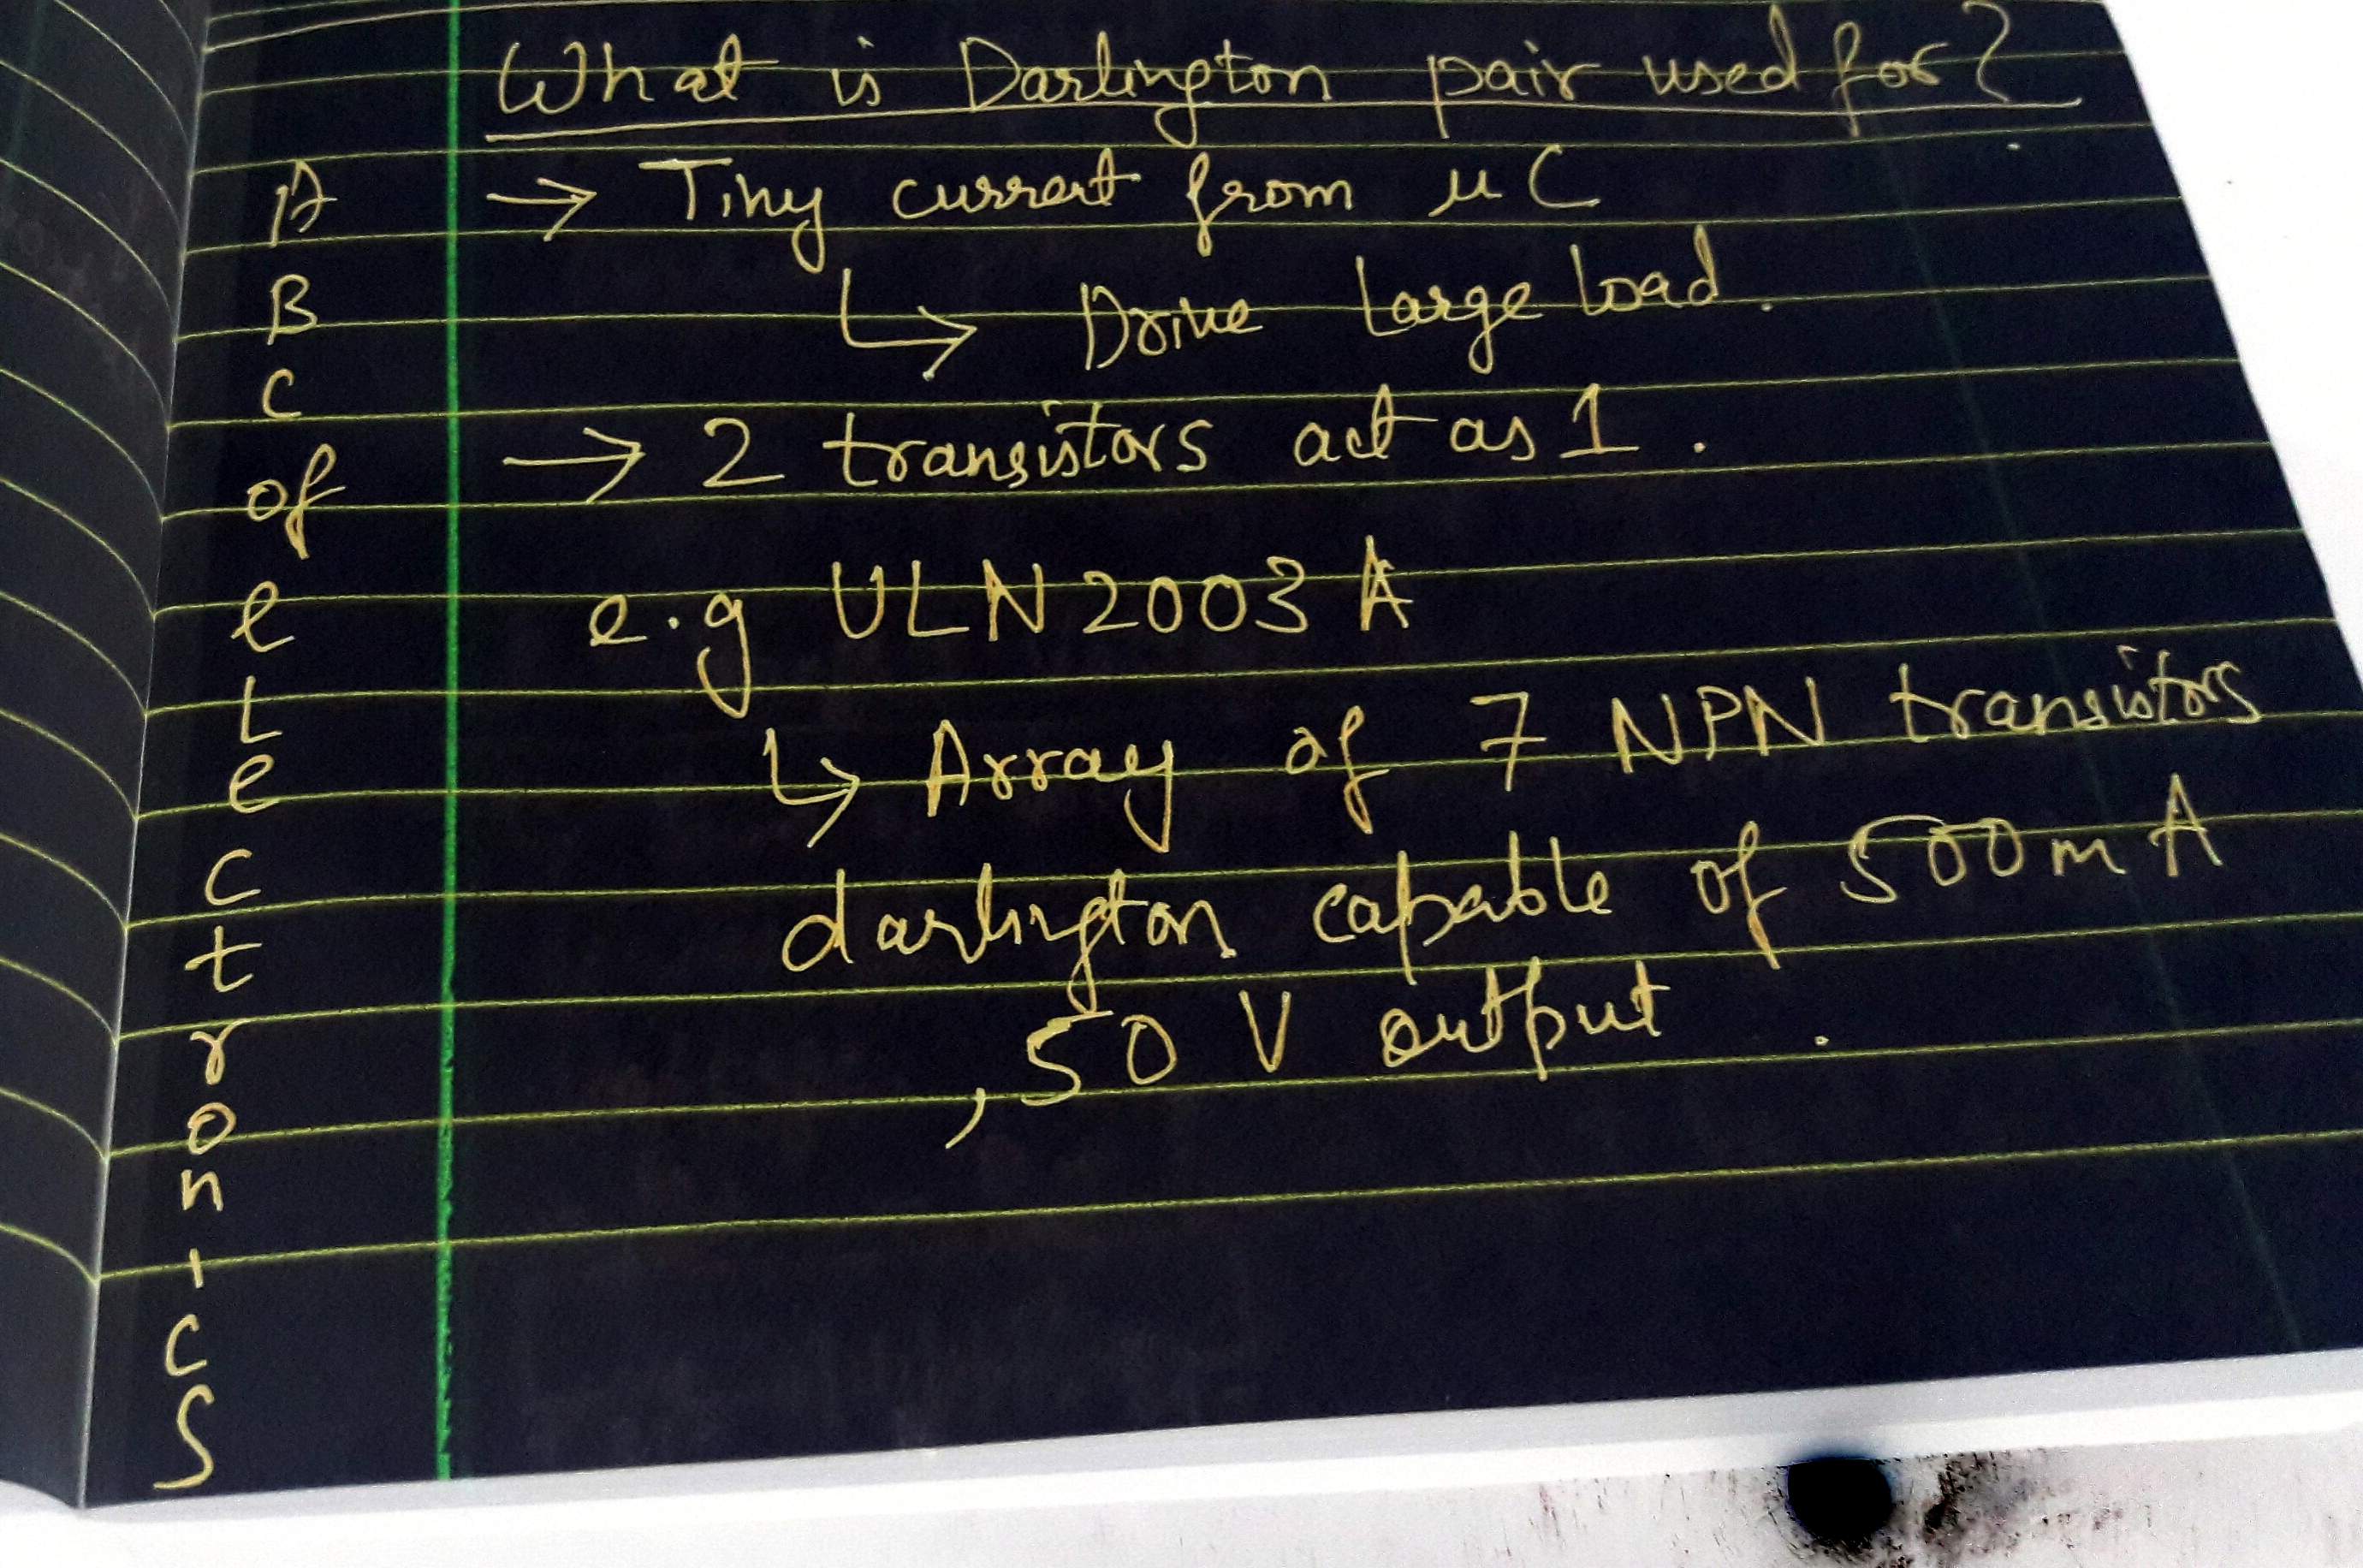 What is Darlington pair used for?
→ Tiny current from μC
↳ Drive Large load.
→ 2 transistors act as 1.
e.g ULN2003A
↳ Array of 7 NPN transistors
darlington capable of 500mA
, 50 V output.
A
B
C
of
e
L
e
c
t
r
o
n
i
c
s